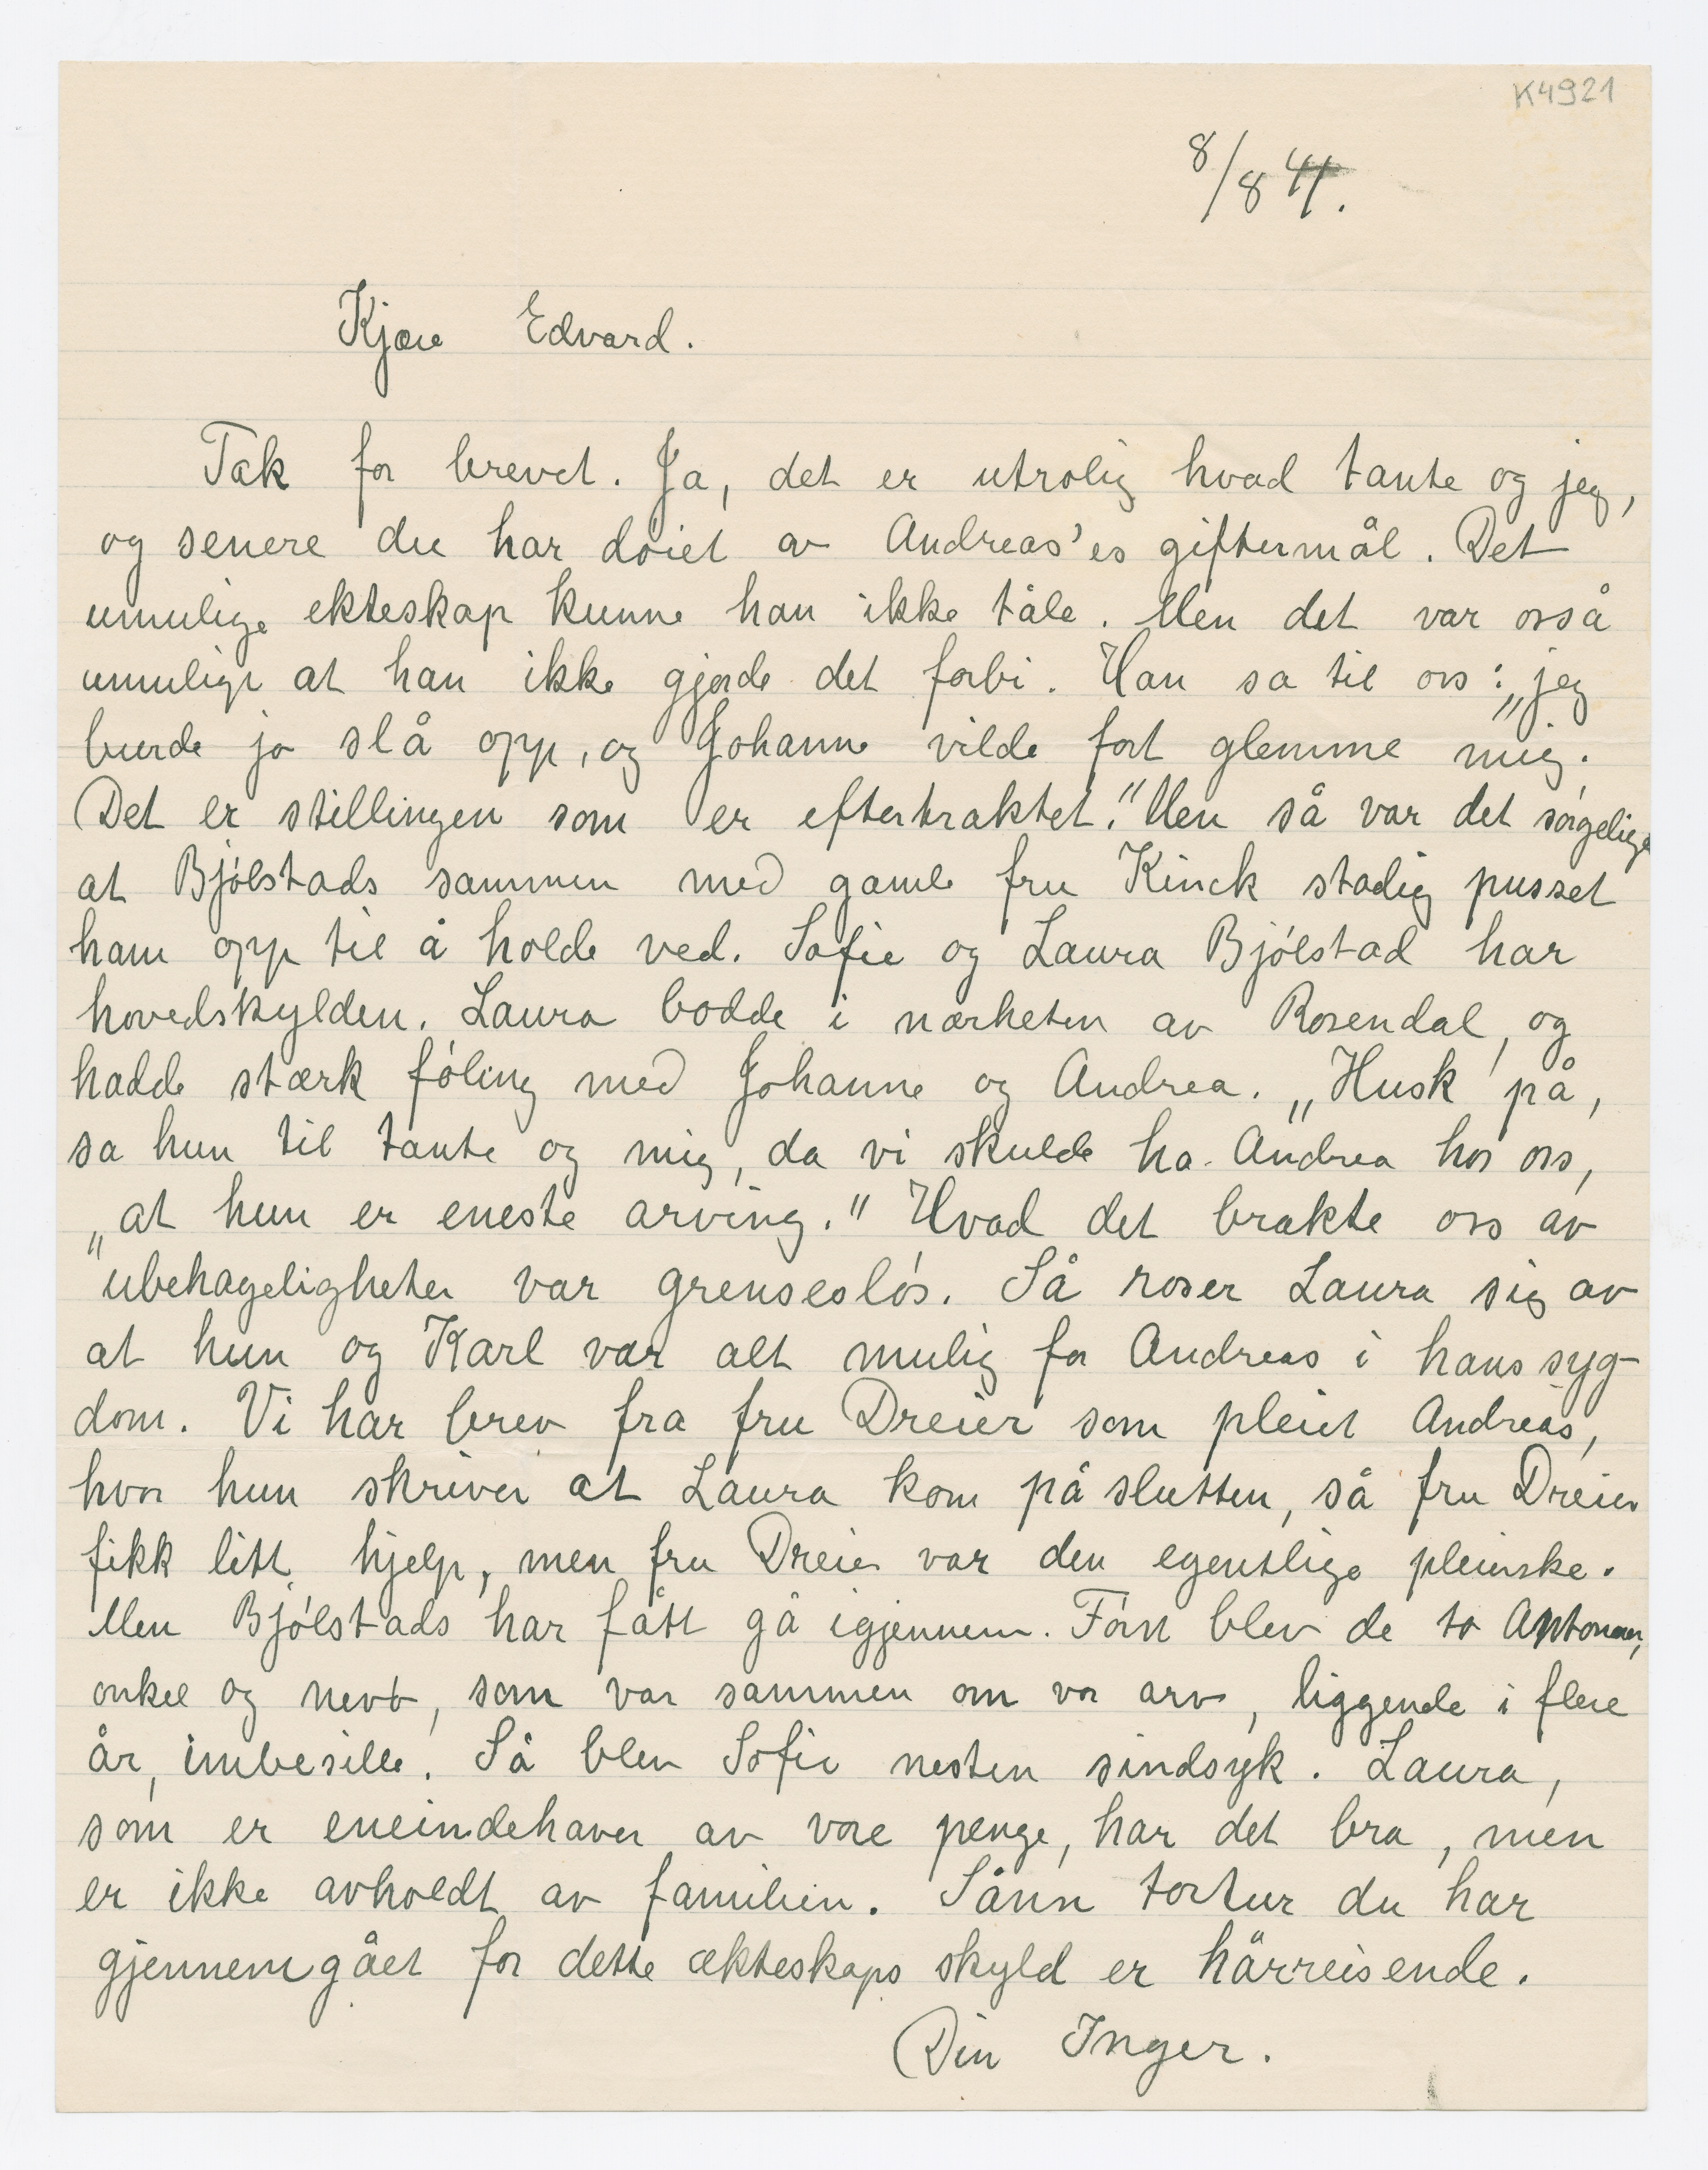 K4921
8/8 41.
Kjære Edvard.
Tak for brevet. Ja, det er utrolig hvad tante og jeg,
og senere du har døiet av Andreas'es giftermål. Det
umulige ekteskap kunne han ikke tåle. Men det var osså
umulige at han ikke gjorde det forbi. Han sa til oss: „jeg
burde jo slå opp, og Johanne vilde fort glemme mig.
Det er stillingen som er eftertraktet." Men så var det sørgelige
at Bjølstads sammen med gamle fru Kinck stadig pusset
ham opp til å holde ved. Sofie og Laura Bjølstad har
hovedskylden. Laura bodde i nærheten av Rosendal, og
hadde stærk føling med Johanne og Andrea. „Husk på,
sa hun til tante og mig, da vi skulde ha Andrea hos oss,
„at hun er eneste arving." Hvad det brakte oss av
ubehageligheter var grensesløs. Så roser Laura sig av
at hun og Karl var alt mulig for Andreas i hans syg-
dom. Vi har brev fra fru Dreier som pleiet Andreas,
hvor hun skriver at Laura kom på slutten, så fru Dreier
fikk litt hjelp, men fru Dreier var den egentlige pleierske.
Men Bjølstads har fått gå igjennem. Først blev de to Antoner,
onkel og nevø, som var sammen om vor arv, liggende i flere
år, imbesille. Så blev Sofie nesten sindsyk. Laura,
som er eneindehaver av vore penge, har det bra, men
er ikke avholdt av familien. Sånn tortur du har
gjennemgået for dette ækteskaps skyld er hårreisende.
Din Inger.